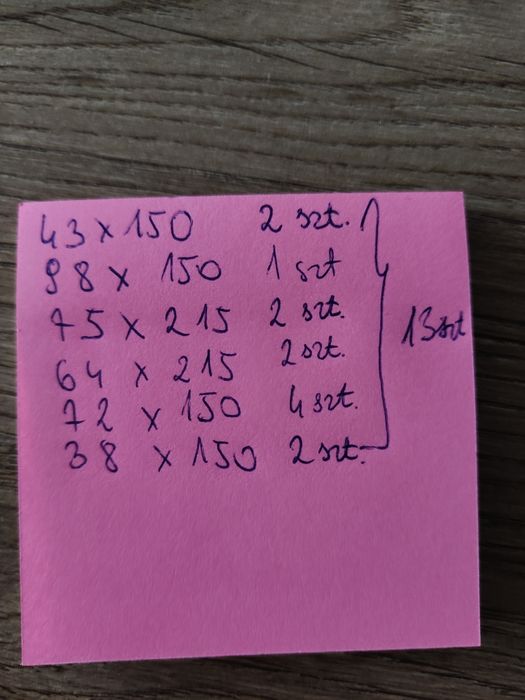 43 x 150 2 szt.
98 x 150 1 szt
75 x 215 2 szt.
64 x 215 2 szt.
72 x 150 4 szt.
38 x 150 2 szt.
13 szt